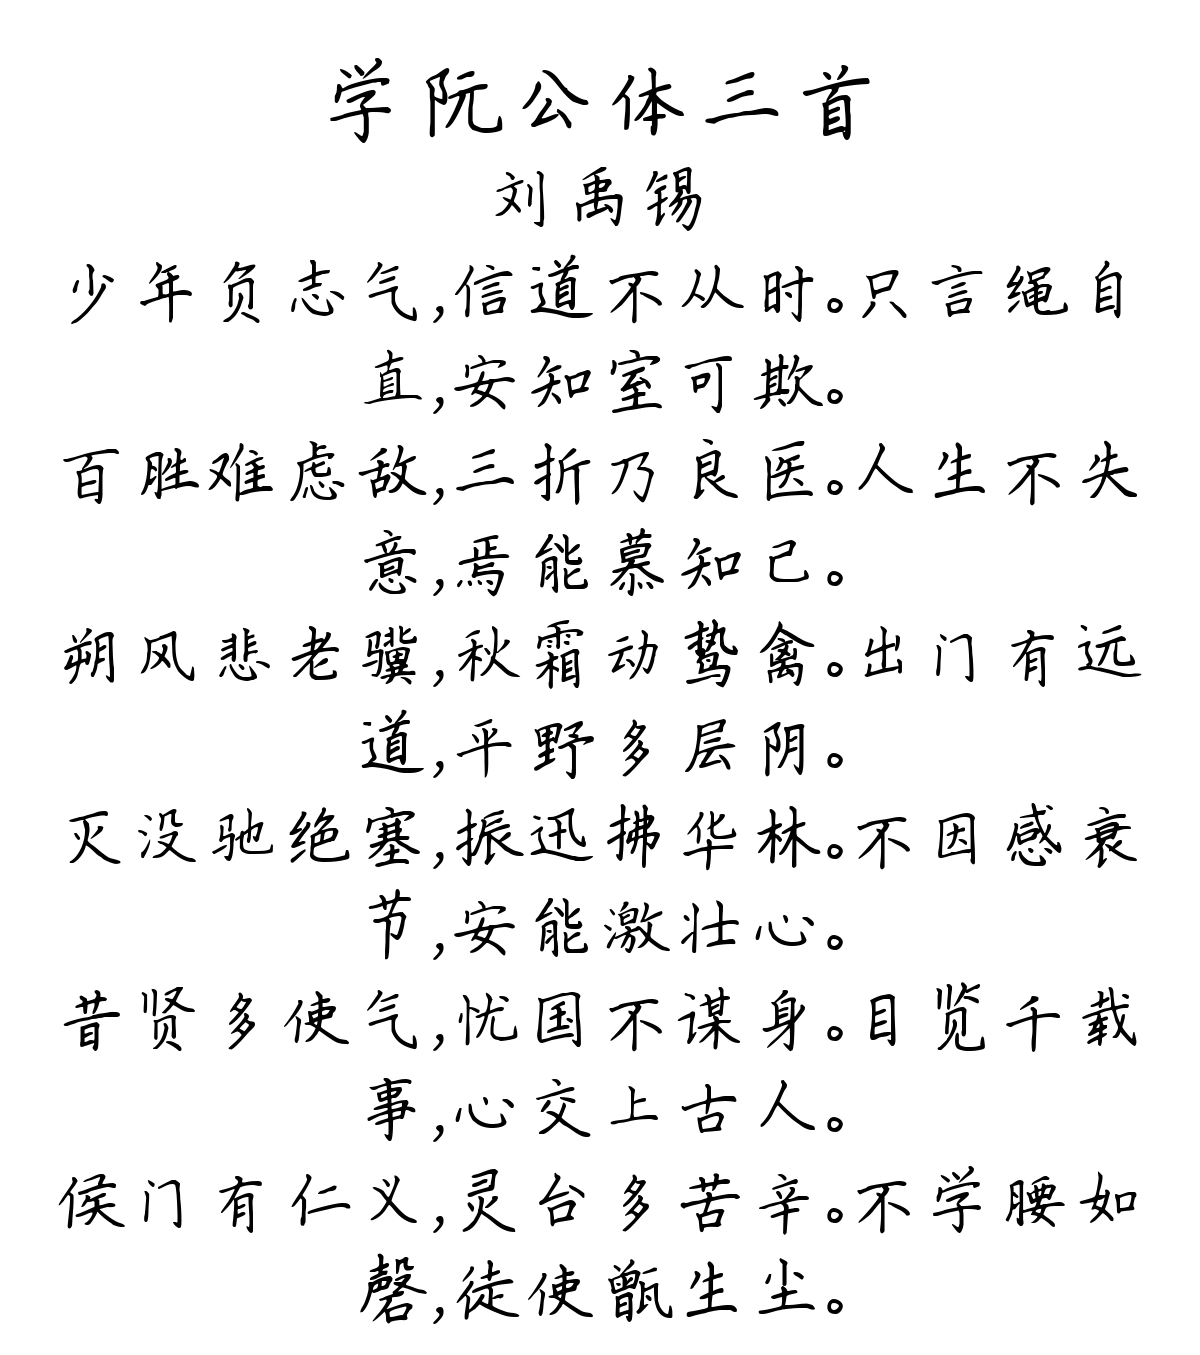 学阮公体三首
刘禹锡
少年负志气,信道不从时。只言绳自
直,安知室可欺。
百胜难虑敌,三折乃良医。人生不失
意,焉能慕知己。
朔风悲老骥,秋霜动鸷禽。出门有远
道,平野多层阴。
灭没驰绝塞,振迅拂华林。不因感衰
节,安能激壮心。
昔贤多使气,忧国不谋身。目览千载
事,心交上古人。
侯门有仁义,灵台多苦辛。不学腰如
磬,徒使甑生尘。